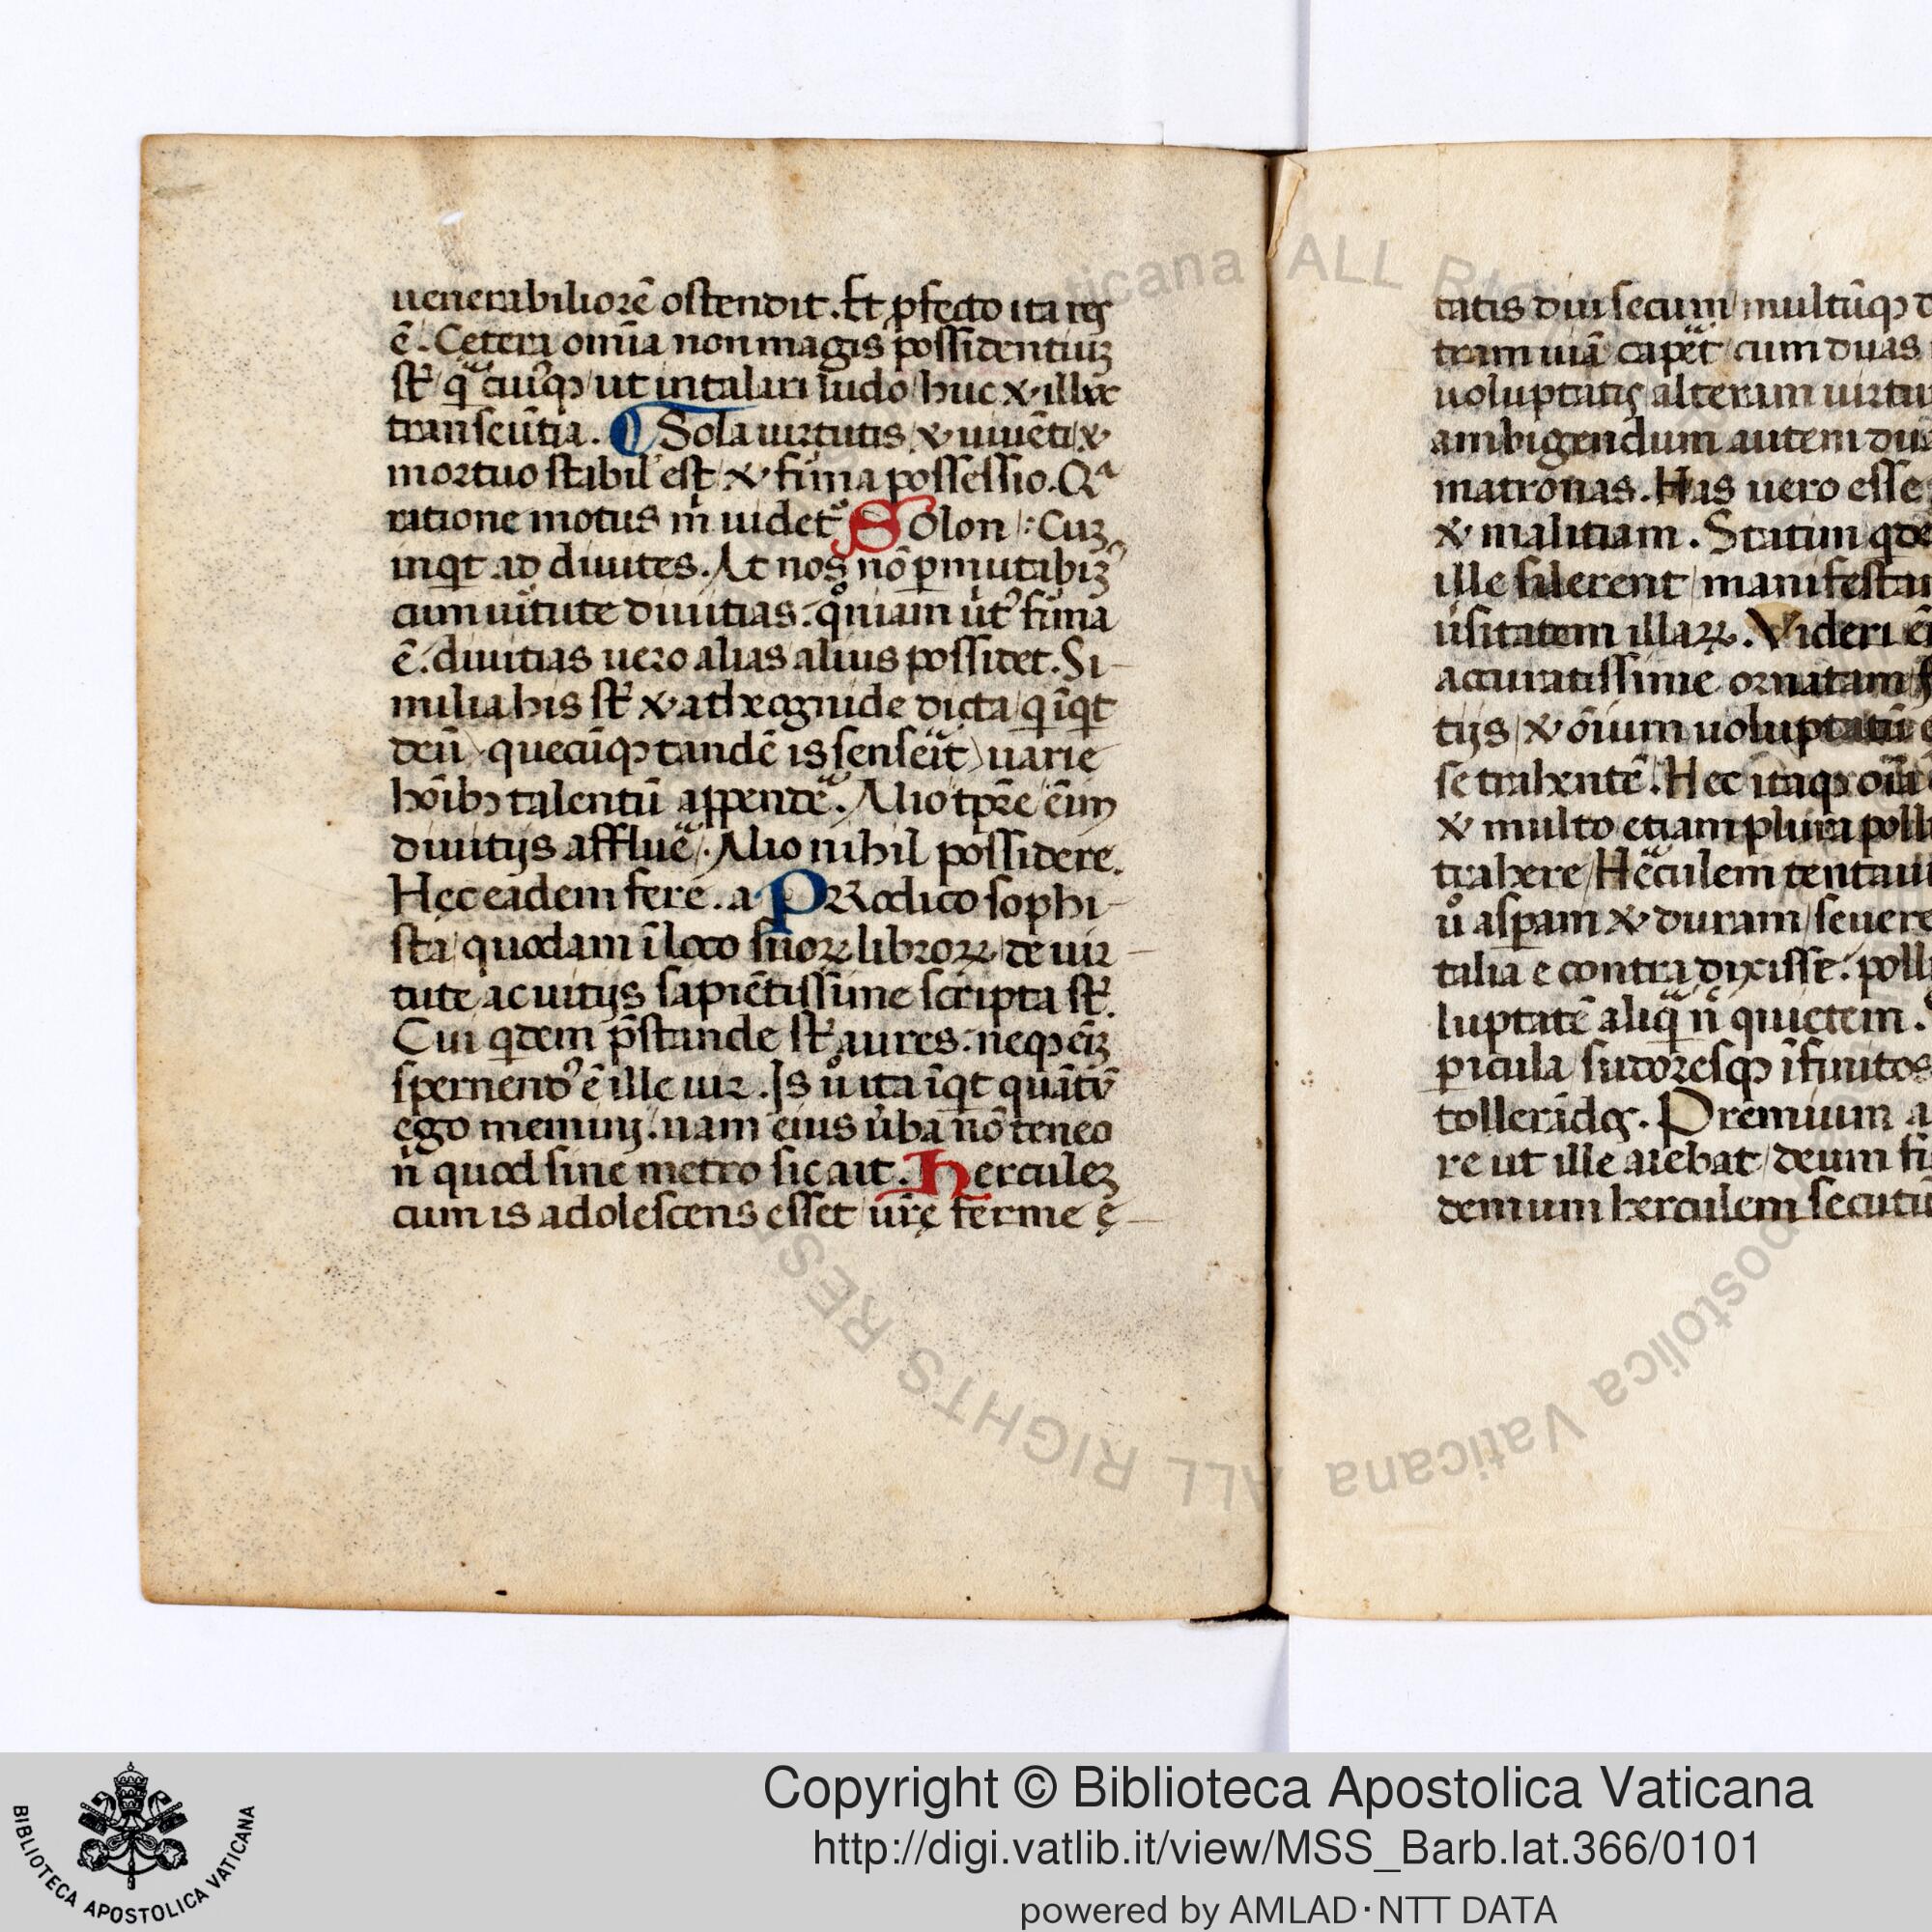 uenerabiliorē ostendit. Et ꝓfecto ita res
ē. Ceteri omīa non magis possidentiuꝫ
st̄ / ut in talari ludo / huc ⁊ illuc
transeūtia. Sola uirtutis / ⁊ uiuēti / ⁊
mortuo stabil' est / ⁊ firma possessio. Qᵃ
ratione motus m uidet᷑ Solon : Cuꝫ
inqt ad diuites. At nos nō ꝑmutabiꝫ
cum uitute diuitias. qm̊iam firma
ē. diuitias uero alias alius possidet. Si-
milia his st̄ ⁊ a theognide dicta / q īqt
deū quecūqꝫ tandē is senserit) uarie
hōibꝫ talentū appende. Alio tpre ēim
diuitijs afflue. Alio nihil possidere.
Hec eadem fere. a PRodico sophi-
sta / quodam ī loco suoꝝ libroꝝ / de uir-
tute ac uitijs sapiētissime scripta st̄.
Cui qdem p̄stande st̄ aures. neqꝫ eīꝫ
spernendꝰ ē ille uir. Is ů ita īqt quātū
ego memini. nam eius uba nō teneo
n̄ quod sine metro sic ait. Herculeꝫ
cum is adolescens esset / ure ferme e-
tatis diu secum / multūqꝫ
tram uiā / cum duas
uoluptatis / alteram uirtu
ambigendum autem
matronas. Has uero esse
⁊ malitiam. Statim qde
ille silerent / manifesta
usitatem illaꝝ. Videri
accuratissime ornatam
tijs / ⁊ ōium uoluptatū
se trahentē. Hec itaqꝫ oīa
⁊ multo etiam plura poll
trahere / Herculem tentau
ů asꝑam ⁊ duram / seuere
talia e contra dixisse. poll
luptatē aliq n̄ quietem.
picula / sudoresqꝫ īfinitos
tollerādos. Premium a
re ut ille aiebat / deum fi
demum herculem secutū
Vaticana ALL RIGHTS RESERVED
Apostolica Vaticana ALL RIGHTS RES
BIBLIOTECA APOSTOLICA VATICANA
Copyright © Biblioteca Apostolica Vaticana
http://digi.vatlib.it/view/MSS_Barb.lat.366/0101
powered by AMLAD·NTT DATA